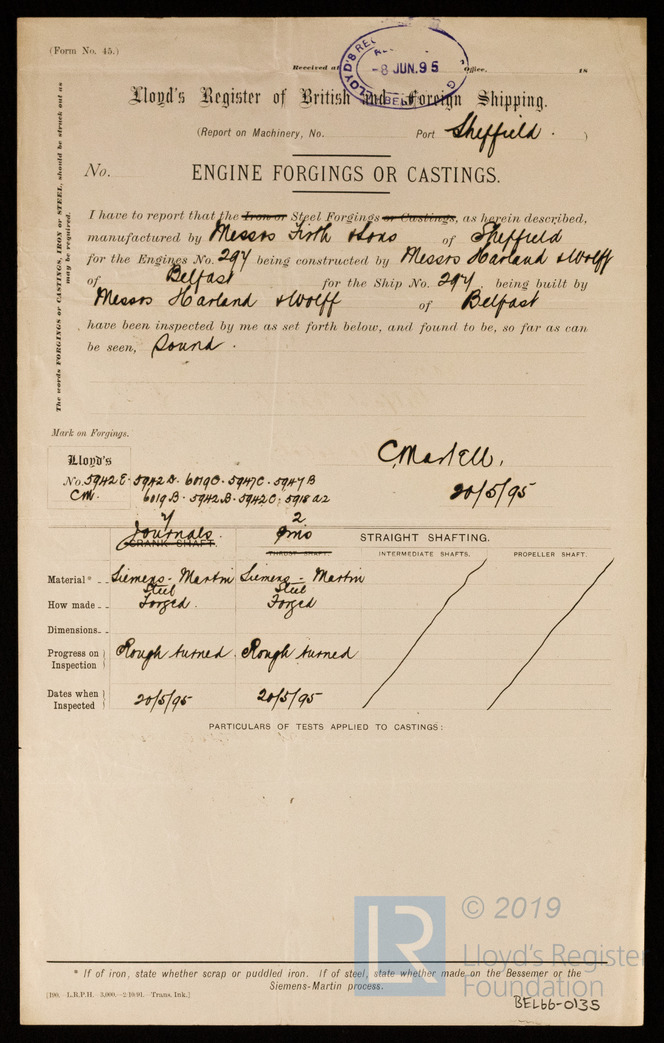 (Form No. 45.)
Received at Office, 18
LLOYD'S REG
-8 JUN.95
BEL
Lloyd's Register of British and Foreign Shipping.
(Report on Machinery, No. Port Sheffield. )
The words FORGINGS or CASTINGS, IRON or STEEL, should be struck out as
may be required.
No.
ENGINE FORGINGS OR CASTINGS.
I have to report that the Iron or Steel Forgings or Castings, as herein described,
manufactured by Messrs Firth & Sons of Sheffield
for the Engines No. 297 being constructed by Messrs Harland & Wolff
of Belfast for the Ship No. 297 being built by
Messrs Harland & Wolff of Belfast
have been inspected by me as set forth below, and found to be, so far as can
be seen, Sound.
Mark on Forgings.
Lloyd's
No. 5942 E. 5942 D. 6019 C. 5947 C. 5947 B
CM. 6019 B. 5942 B. 5942 C. 5918 A2
C. Martell,
20/5/95
7 2
Journals Pins STRAIGHT SHAFTING.
CRANK SHAFT. THRUST SHAFT. INTERMEDIATE SHAFTS. PROPELLER SHAFT.
Material* Siemens-Martin Steel Siemens-Martin Steel
How made Forged. Forged
Dimensions
Progress on Inspection Rough turned. Rough turned
Dates when Inspected 20/5/95 20/5/95
PARTICULARS OF TESTS APPLIED TO CASTINGS:
© 2019
LR
Lloyd's Register
Foundation
* If of iron, state whether scrap or puddled iron. If of steel, state whether made on the Bessemer or the
Siemens-Martin process.
[190. L.R.P.H. 3,000.-2/10/91. Trans. Ink.]
BEL66-0135